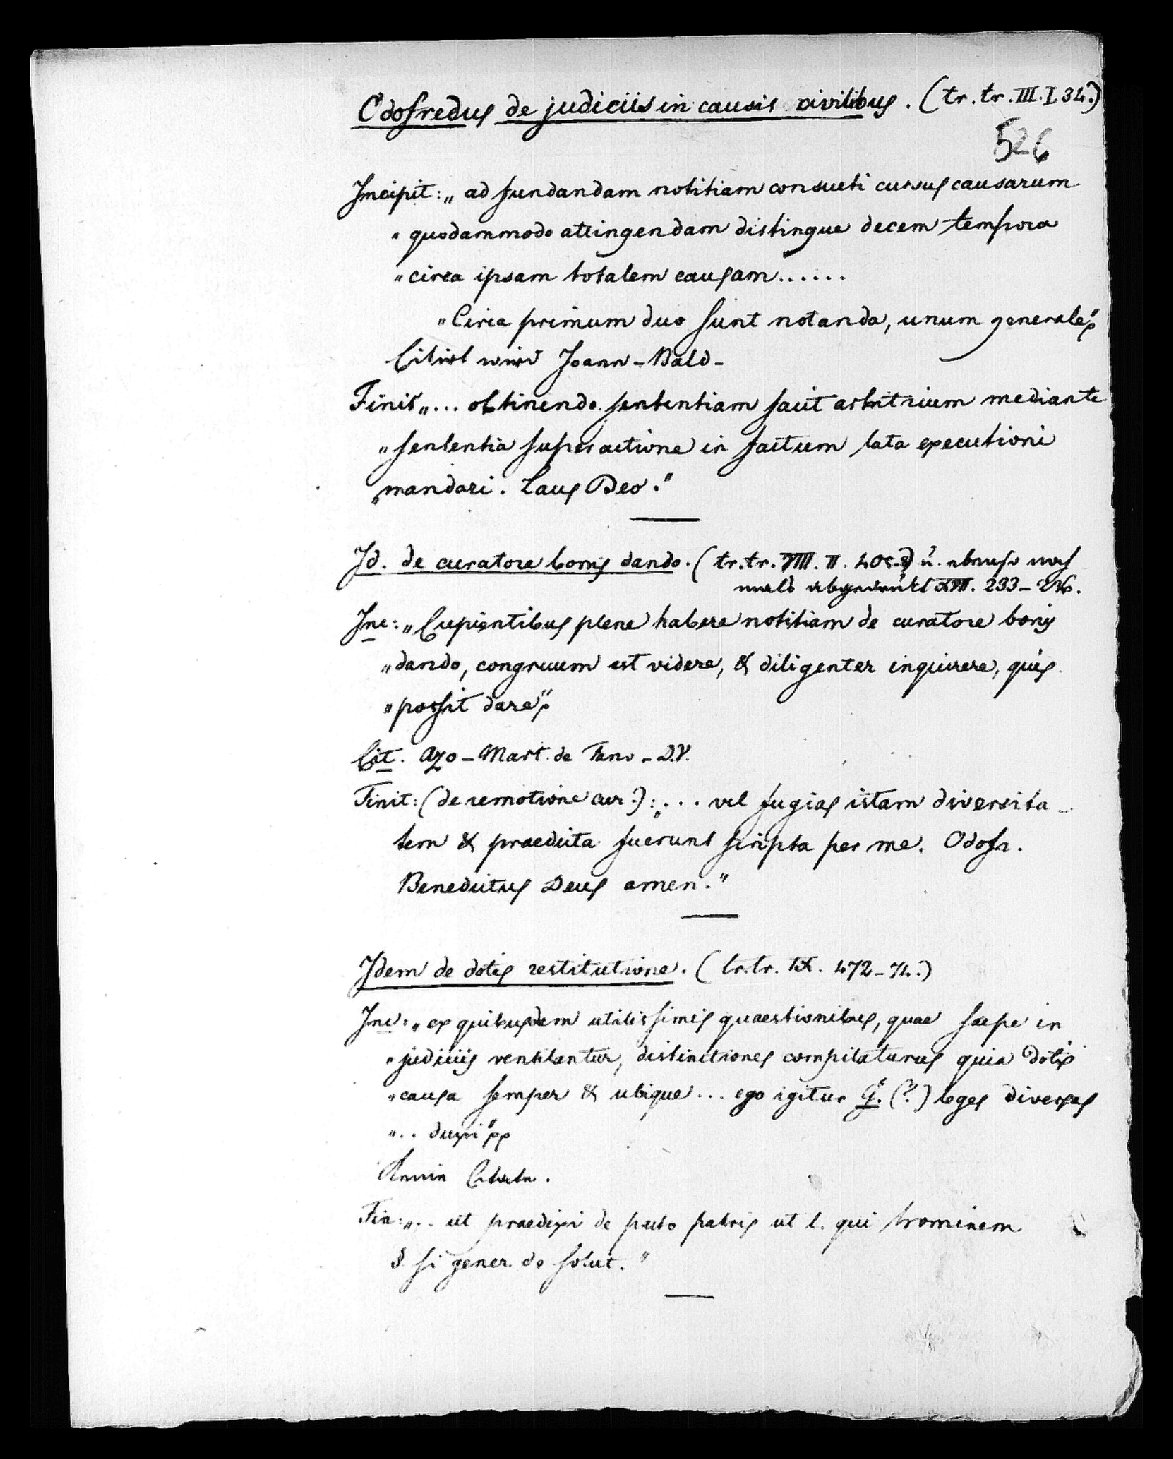 Odofredus de judiciis in causis civilibus. (tr. tr. III. I. 34.)
526
Incipit: „ad fundandam notitiam consueti cursus causarum
„quodammodo attingendam distingue decem tempora
„circa ipsam totalem causam......
„Circa primum duo sunt notanda, unum generale“
Citirt wird Joann - Bald -
Finit „... obtinendo sententiam facit arbitrium mediante
„sententia super actione in factum lata executioni
„mandari. Laus Deo.“
Id. de curatore bonis dando. (tr. tr. VIII. II. u. ebenso noch
233-
Inc: „Cupientibus plene habere notitiam de curatore bonis
„dando, congruum est videre, & diligenter inquirere, quis
„possit dare“
Cit. Azo - Mart. de Fano - D.V.
Finit: (de remotione cur.): „... vel fugias istam diversita-
tem & praedicta fuerunt scripta per me. Odofr.
Benedictus Deus amen.“
Idem de dotis restitutione. (tr. tr. IX. 472-74.)
Inc: „ex quibusdem utilissimis quaestionibus, quae saepe in
„judiciis ventilantur, distinctiones compilaturus quia dotis
„causa semper & ubique ... ego igitur G. (?) leges diversas
„.. duxi“
Citate.
Fin: „.. ut praedixi de pacto patris ut l. qui hominem
§. si gener de solut.“